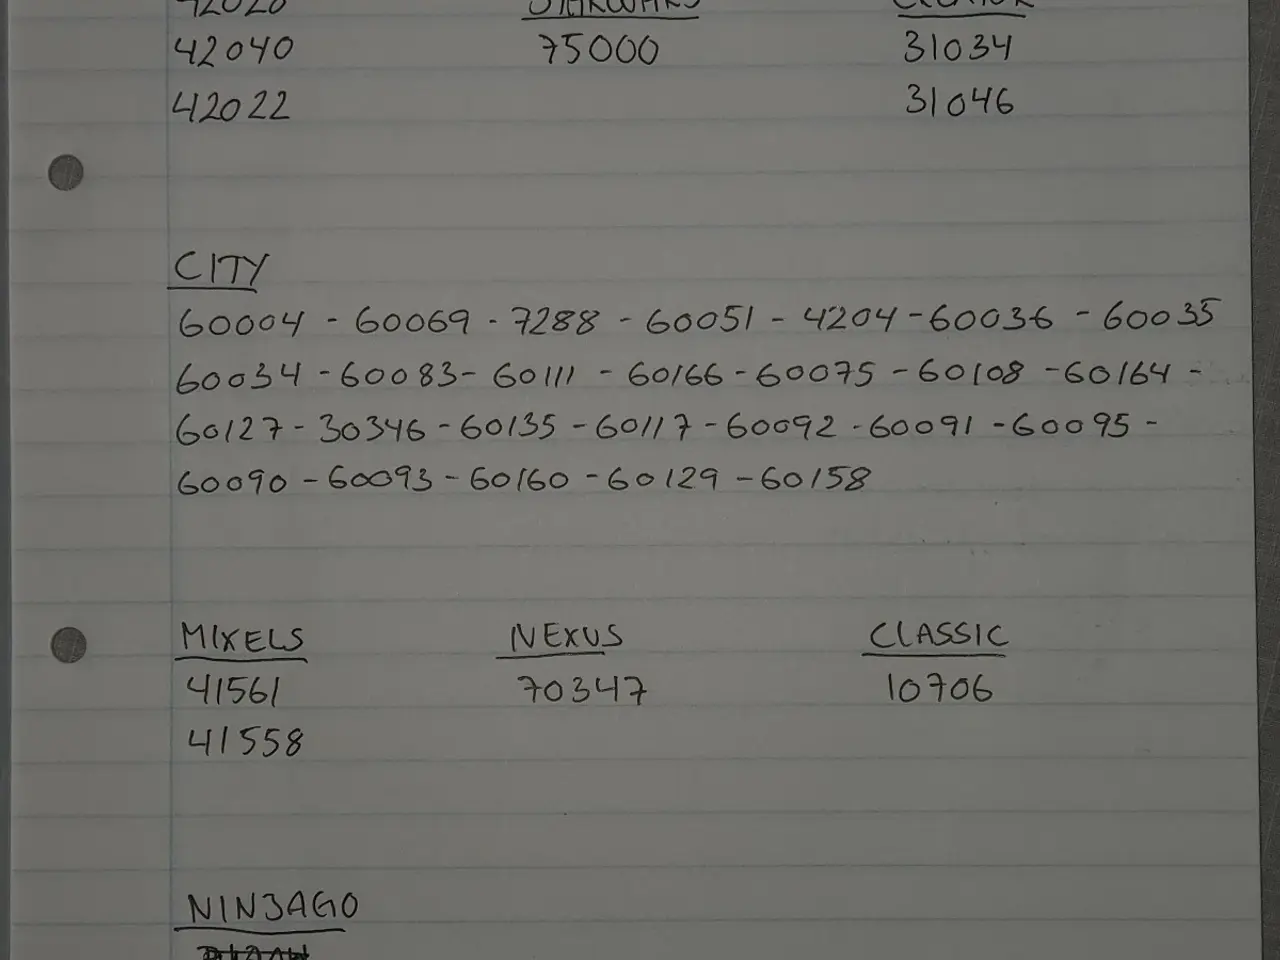 42020 STARWARS CREATOR
42040 75000 31034
42022 31046
CITY
60004 - 60069 - 7288 - 60051 - 4204 - 60036 - 60035
60034 - 60083 - 60111 - 60166 - 60075 - 60108 - 60164 -
60127 - 30346 - 60135 - 60117 - 60092 - 60091 - 60095 -
60090 - 60093 - 60160 - 60129 - 60158
MIXELS NEXUS CLASSIC
41561 70347 10706
41558
NINJAGO